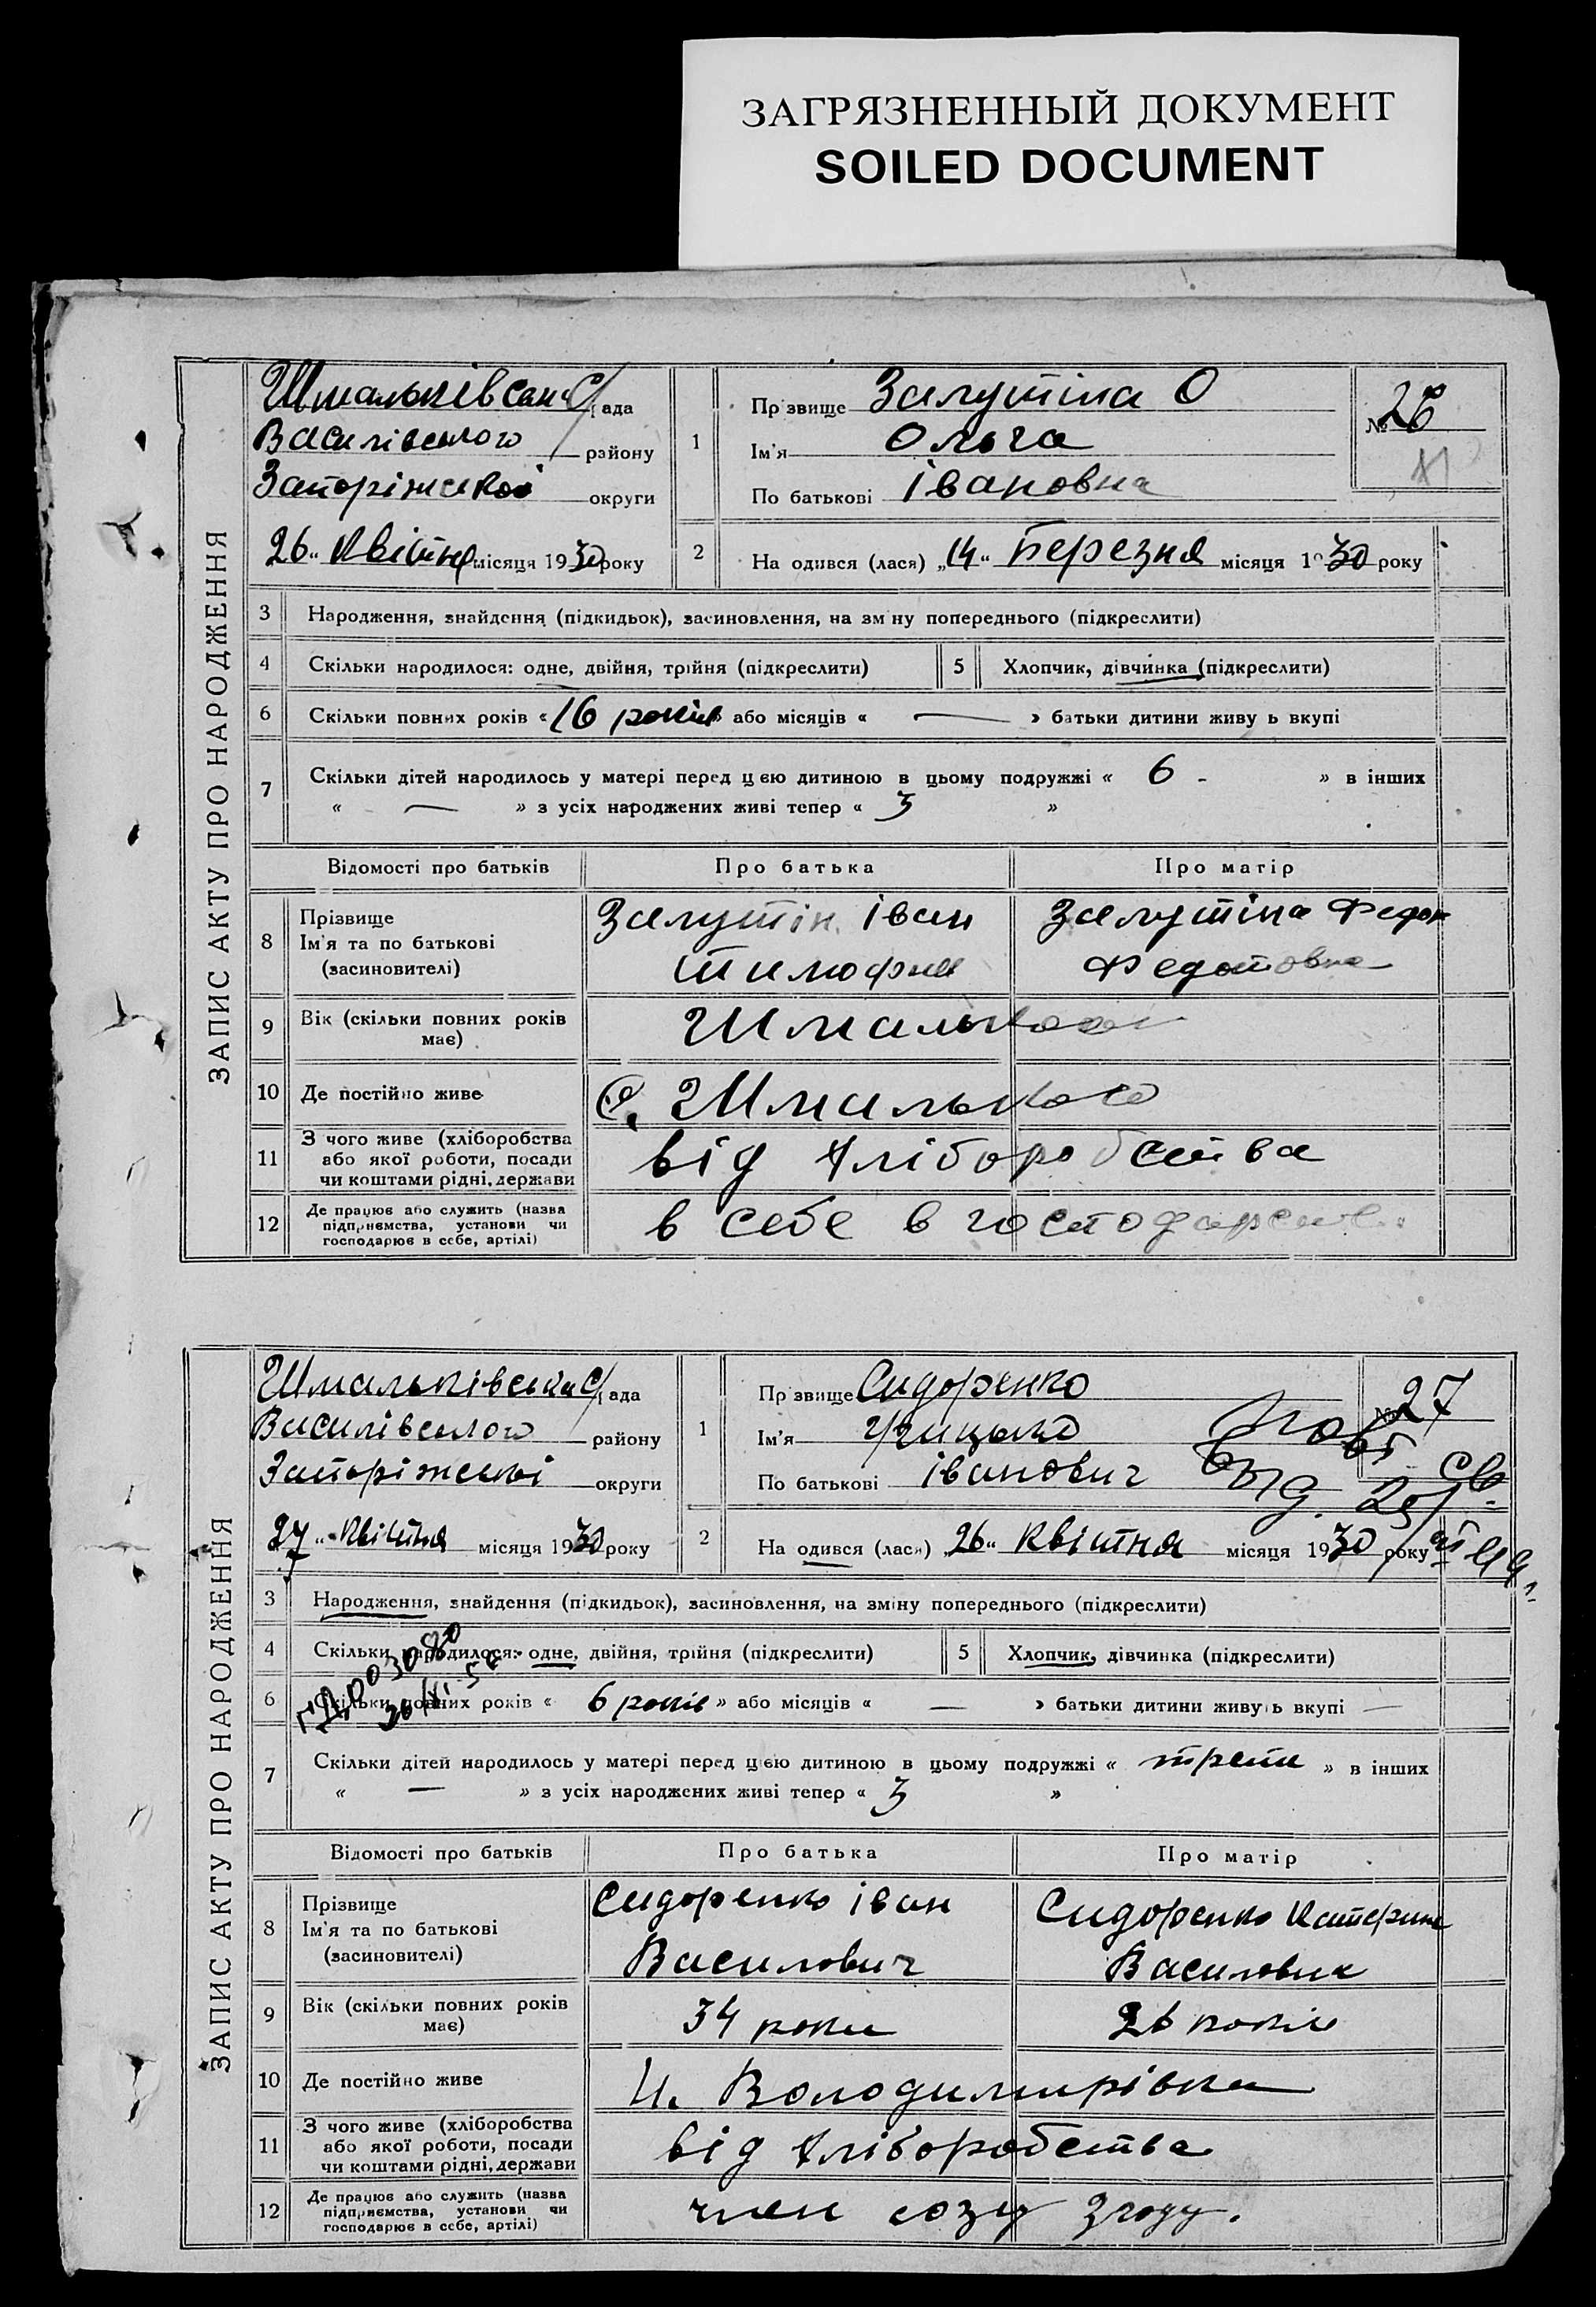 ЗАГРЯЗНЕННЫЙ ДОКУМЕНТ
SOILED DOCUMENT
ЗАПИС АКТУ ПРО НАРОДЖЕННЯ
Шмальківська С/рада
Василівського району
Запоріжської округи
26 квітня місяця 1930 року
1
Прізвище Залутіна О
Ім'я Ольга
По батькові Івановна
№ 26
2
На одився (лася) „14" березня місяця 1930 року
3 Народження, знайдення (підкидьок), засиновлення, на зміну попереднього (підкреслити)
4 Скільки народилося: одне, двійня, трійня (підкреслити)
5 Хлопчик, дівчинка (підкреслити)
6 Скільки повних років «16 років» або місяців « — » батьки дитини живу ь вкупі
7 Скільки дітей народилось у матері перед цією дитиною в цьому подружжі « 6 - » в інших
« — » з усіх народжених живі тепер « 3 »
Відомості про батьків Про батька Про матір
8 Прізвище Ім'я та по батькові (засиновителі)
Залутін Іван
Тимофии
Залутіна Федон
Федотовна
9 Вік (скільки повних років має)
10 Де постійно живе
с. Шмалькове
11 З чого живе (хліборобства або якої роботи, посади чи коштами рідні, держави
від хліборобства
12 Де працює або служить (назва підприємства, установи чи господарює в себе, артілі)
в себе в господарстві
ЗАПИС АКТУ ПРО НАРОДЖЕННЯ
Шмальківська С/рада
Василівського району
Запоріжської округи
27 квітня місяця 1930 року
1
Прізвище Сидоренко
Ім'я Грицько
По батькові Іванович
№ 27
2
На одився (лася) 26 квітня місяця 1930 року
3 Народження, знайдення (підкидьок), засиновлення, на зміну попереднього (підкреслити)
4 Скільки народилося: одне, двійня, трійня (підкреслити)
5 Хлопчик, дівчинка (підкреслити)
6 Скільки повних років « 6 років » або місяців « — » батьки дитини живу ь вкупі
7 Скільки дітей народилось у матері перед цією дитиною в цьому подружжі « трети » в інших
« — » з усіх народжених живі тепер « 3 »
Відомості про батьків Про батька Про матір
8 Прізвище Ім'я та по батькові (засиновителі)
Сидоренко Іван
Василович
Сидоренко Катерина
Василовна
9 Вік (скільки повних років має)
34 роки
26 років
10 Де постійно живе
Н. Володимирівка
11 З чого живе (хліборобства або якої роботи, посади чи коштами рідні, держави
від хліборобства
12 Де працює або служить (назва підприємства, установи чи господарює в себе, артілі)
член созу Згоду.